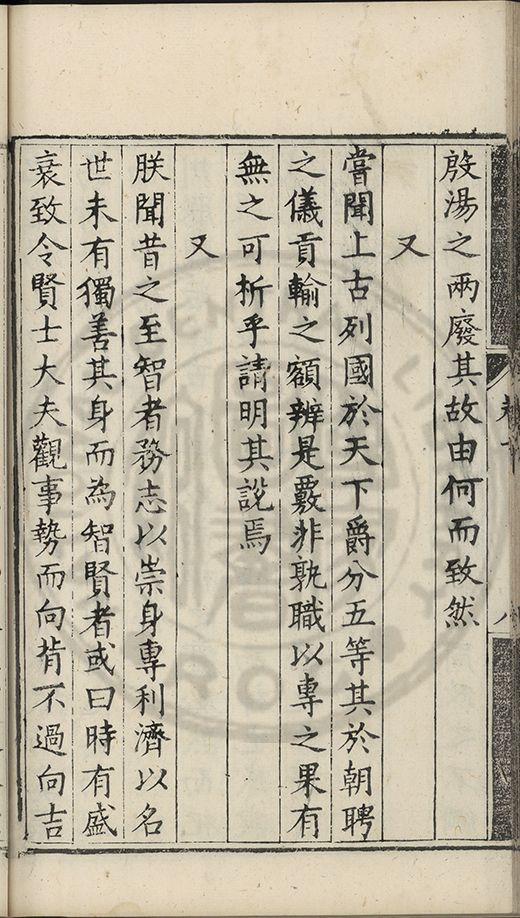 殷湯之兩廢其故由何而致然
又
嘗聞上古列國於天下爵分五等其於朝聘
之儀貢輸之額辨是覈非孰職以專之果有
無之可析乎請明其說焉
又
朕聞昔之至智者務志以崇身專利濟以名
世未有獨善其身而為智賢者或曰時有盛
衰致令賢士大夫觀事勢而向背不過向吉